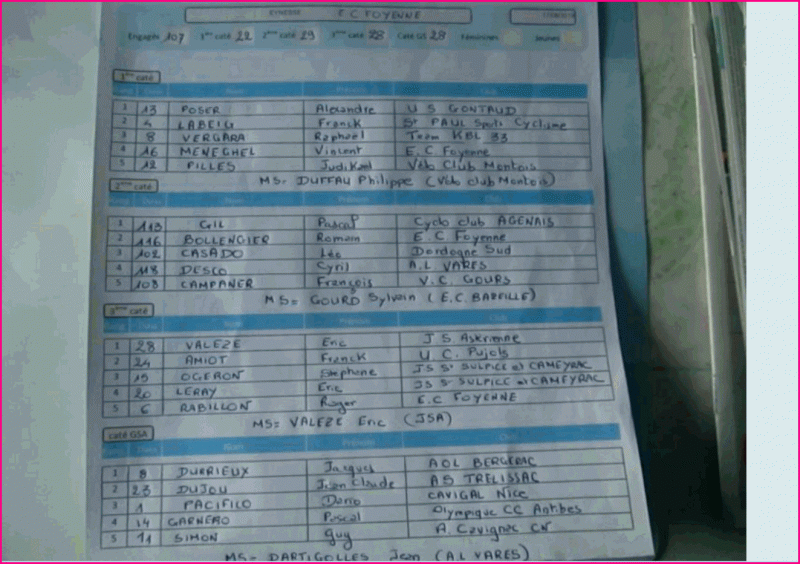 E.C FOYENNE
Engagés 107 1ère caté 22 2ème caté 29 3ème caté 28 Caté GS 28 Féminines Jeunes
1ère caté
Nom Prénom Club
1 13 POSER Alexandre U S GONTAUD
2 4 LABEIG Franck St PAUL Sports Cyclisme
3 8 VERGARA Raphaël Team KBL 33
4 16 MENEGHEL Vincent E.C. Foyenne
5 12 PILLES Judikael Vélo Club Montois
MS= DUFFAU Philippe (Vélo club Montois)
2ème caté
Nom Prénom Club
1 113 GIL Pascal Cyclo club AGENAIS
2 116 BOLLENGIER Romain E.C. Foyenne
3 102 CASADO Léo Dordogne Sud
4 118 DESCO Cyril A.L. VARES
5 108 CAMPANER François V.C. GOURS
MS= GOURD Sylvain (E.C. BAREILLE)
3ème caté
Nom Prénom Club
1 28 VALEZE Eric J S Astérienne
2 24 AMIOT Franck U C. Pujols
3 19 OGERON Stéphane JS St SULPICE et CAMEYRAC
4 20 LERAY Eric JS St SULPICE et CAMEYRAC
5 6 RABILLON Roger E.C FOYENNE
MS= VALEZE Eric (JSA)
caté GSA
Nom Prénom Club
1 8 DURRIEUX Jacques AOL BERGERAC
2 23 DUJOU Jean Claude AS TRELISSAC
3 1 PACIFILO Dario CAVIGAL Nice
4 14 GARNERO Pascal Olympique CC Antibes
5 11 SIMON Guy A. Cavignac CN
MS= DARTIGOLLES Jean (A.L VARES)